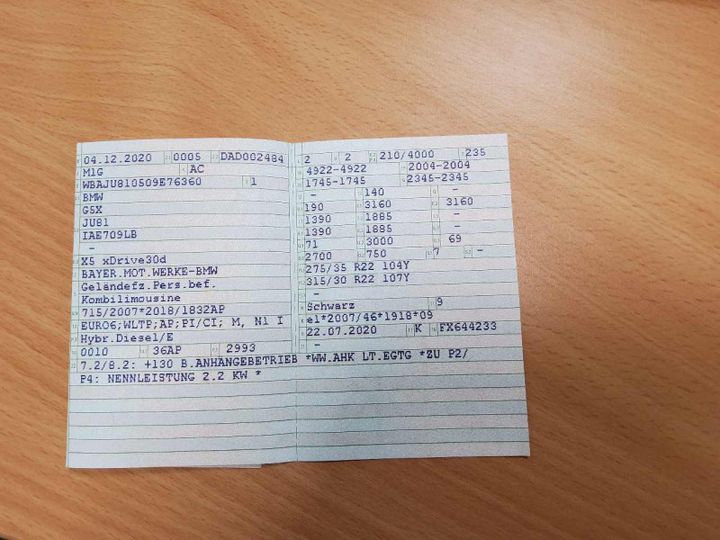 04.12.2020 0005 DAD002484
M1G AC
WBAJU810509E76360 1
BMW
G5X
JU81
IAE709LB
-
X5 xDrive30d
BAYER.MOT.WERKE-BMW
Geländefz.Pers.bef.
Kombilimousine
715/2007*2018/1832AP
EURO6;WLTP;AP;PI/CI; M, N1 I
Hybr.Diesel/E
0010 36AP 2993
2 2 210/4000 235
4922-4922 2004-2004
1745-1745 2345-2345
- 140 -
190 3160 3160
1390 1885 -
1390 1885 -
71 3000 69
2700 750 7 -
275/35 R22 104Y
315/30 R22 107Y
-
Schwarz 9
e1*2007/46*1918*09
22.07.2020 K FX644233
-
7.2/8.2: +130 B.ANHÄNGEBETRIEB *WW.AHK LT.EGTG *ZU P2/
P4: NENNLEISTUNG 2.2 KW *